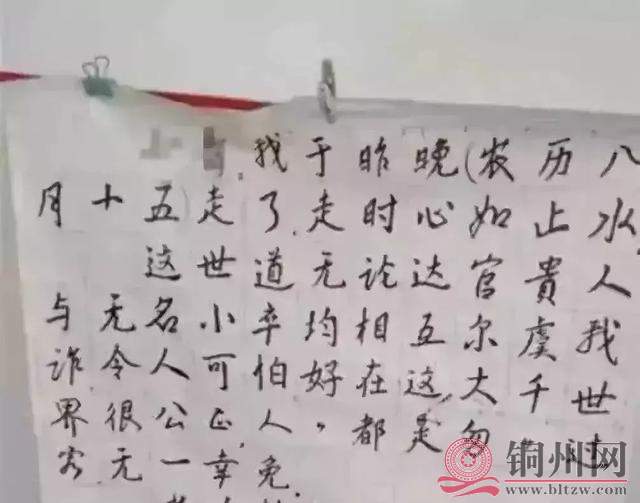 我于昨晚(农历八
月十五)走了,走时心如止水,
这世道无论达官貴人
与无名小卒均相互尔虞我
诈令人可怕,好在这大千世
界很公正,人〃都是匆〃过
客无一幸免。
铜州网
www.bltzw.com